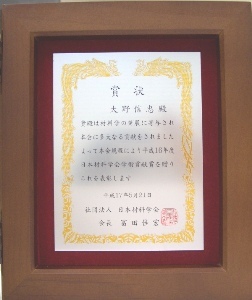 賞状
大野信忠殿
貴殿は材料学の発展に尽力され
本会に多大なる貢献をされました
よって本会規程により平成16年度
日本材料学会学術貢献賞を贈り
これを表彰します
平成17年5月21日
社団法人 日本材料学会
会長 冨田佳宏